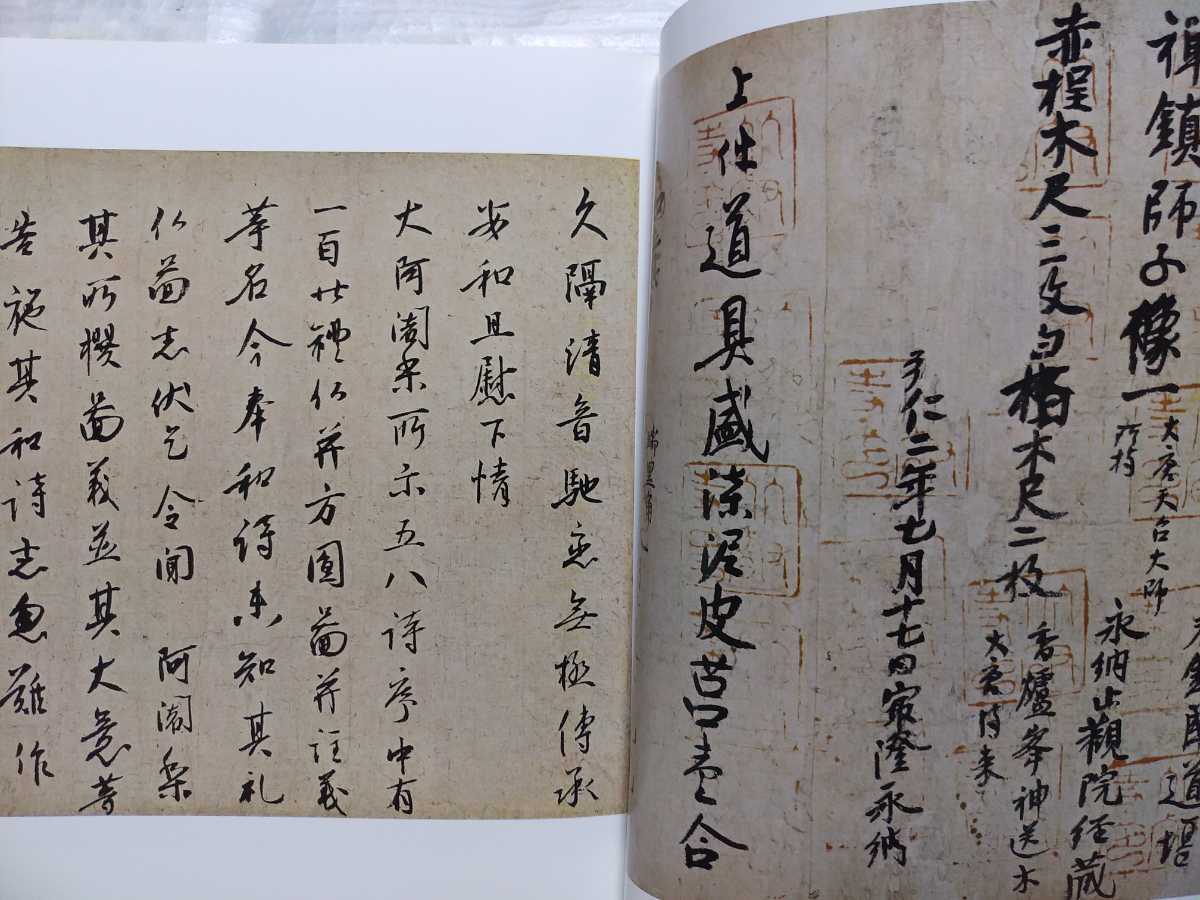 禅鎮師子像一
大唐天台大師
所持
赤樫木尺三文白楉木尺二枚
永納止觀院經藏
香爐峯神送木
大唐請来
弘仁二年七月十七日最澄永納
上仕道具盛漆泥皮莒壹合
久隔清音馳戀無極傳承
安和且慰下情
大阿闍梨所示五八詩序中有
一百廿禮仏并方圓圖并註義
等名今奉和詩未知其礼
仏圖志伏乞令聞 阿闍梨
其所撰圖義並其大意等
告施其和詩志忽難作